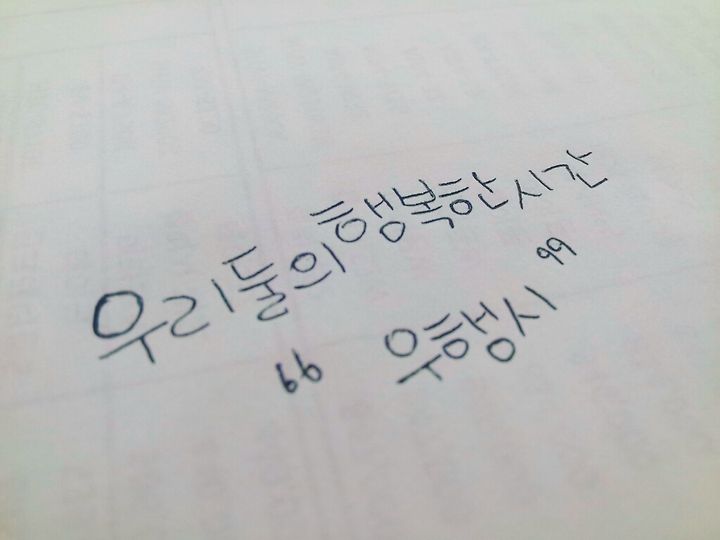 우리둘의행복한시간
"우행시"